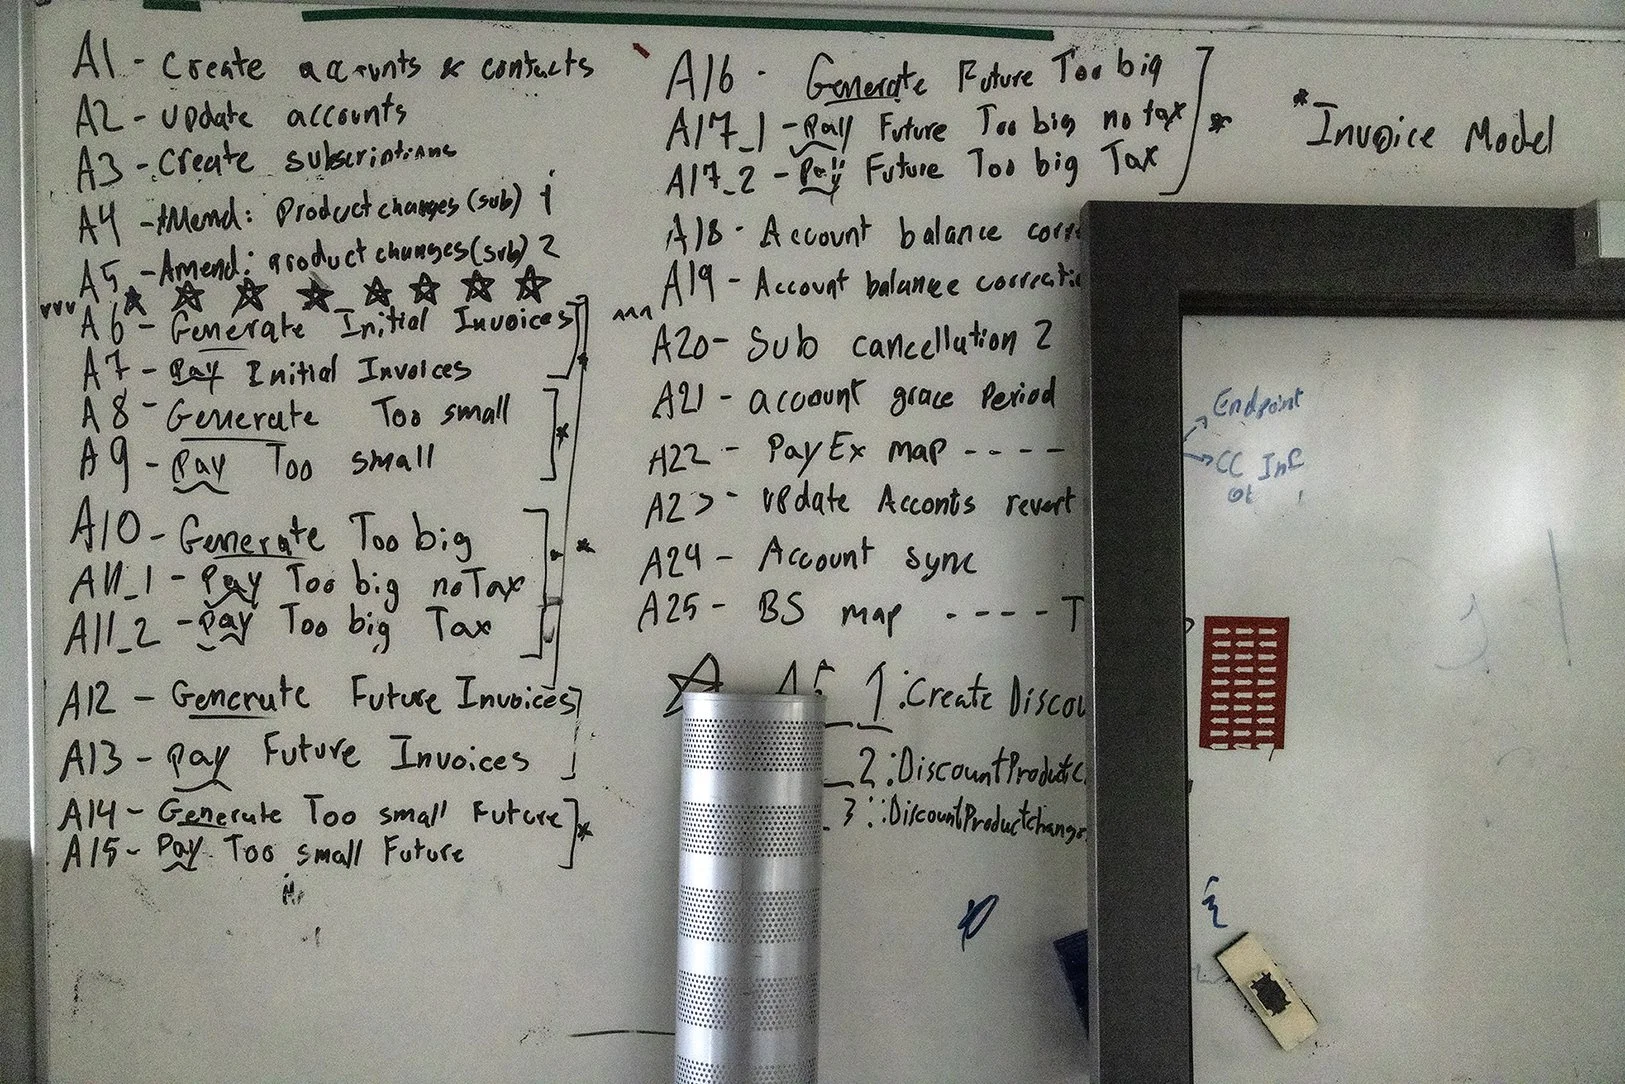 A1 - Create accounts & contacts
A2 - update accounts
A3 - Create subscriptions
A4 - AMend: Product changes (sub) 1
A5 - Amend: product changes (sub) 2
A6 - Generate Initial Invoices
A7 - Pay Initial Invoices
A8 - Generate Too small
A9 - Pay Too small
A10 - Generate Too big
A11_1 - Pay Too big no Tax
A11_2 - Pay Too big Tax
A12 - Generate Future Invoices
A13 - Pay Future Invoices
A14 - Generate Too small Future
A15 - Pay Too small Future
A16 - Generate Future Too big
A17_1 - Pay Future Too big no tax
A17_2 - Pay Future Too big Tax
A18 - Account balance corre
A19 - Account balance correcti
A20 - Sub cancellation 2
A21 - account grace Period
A22 - PayEx map ----
A23 - update Acconts revert
A24 - Account sync
A25 - BS map ---- T
A5_1: Create Discou
_2: DiscountProductc
_3: DiscountProductchange
*Invoice Model
Endpoint
CC Inf